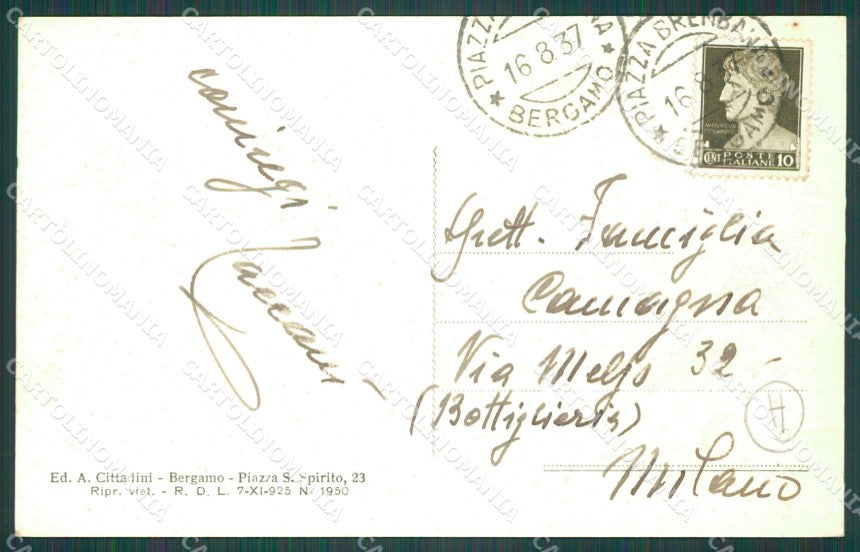 PIAZZA BREMBANA
16.8.37
BERGAMO
PIAZZA BREMBANA
16.8.37
BERGAMO
CENT. POSTE ITALIANE 10
coniugi
Spett. Famiglia
Camagna
Via Melzo 32 -
(Bottiglieria)
Milano
H
Ed. A. Cittadini - Bergamo - Piazza S. Spirito, 23
Ripr. viet. - R. D. L. 7-XI-925 N. 1950
CARTOLINOMANIA